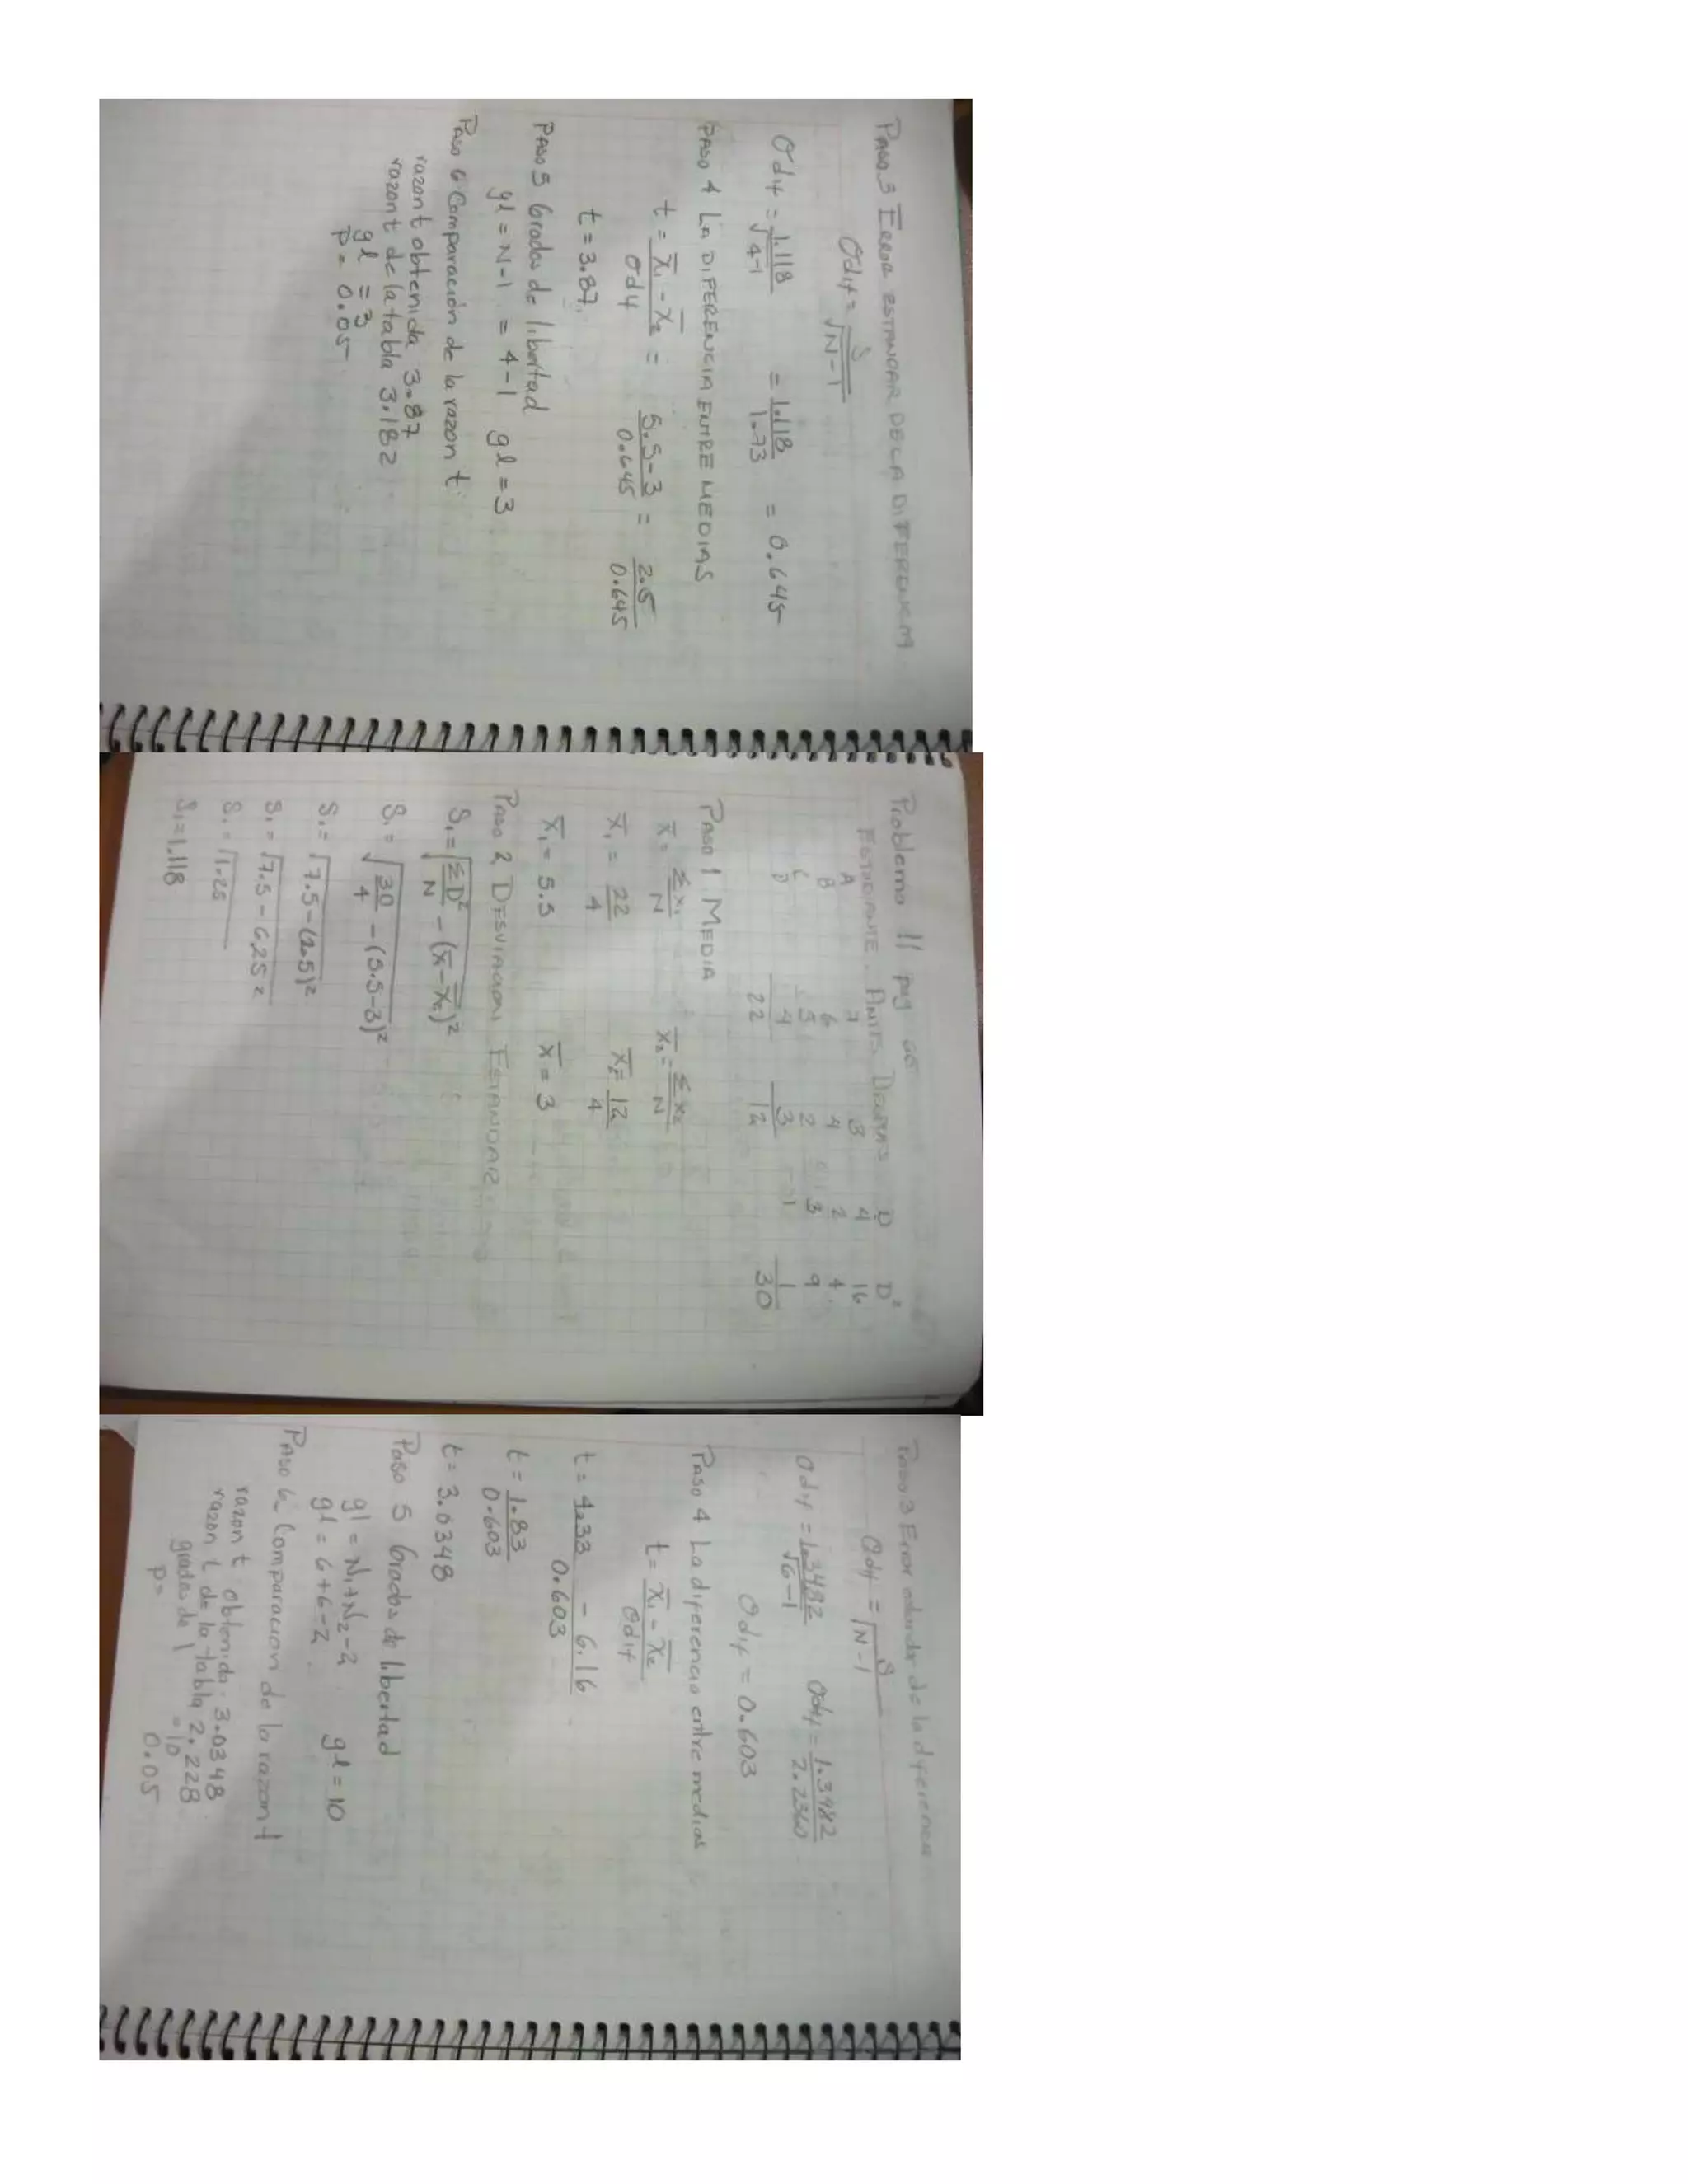 PASO 3 ERROR ESTANDAR DE LA DIFERENCIA
σdif = S / √N-1
σdif = 1.118 / √4-1 = 1.118 / 1.73 = 0.645
PASO 4 LA DIFERENCIA ENTRE MEDIAS
t = x̄1 - x̄2 / σdif = 5.5-3 / 0.645 = 2.5 / 0.645
t = 3.87
PASO 5 Grados de libertad
gl = N-1 = 4-1 gl = 3
PASO 6 Comparación de la razon t
razon t obtenida 3.87
razon t de la tabla 3.182
gl = 3
p = 0.05
Problema 11 pag
ESTUDIANTE ANTES DESPUES D D²
A 7 3 4 16
B 6 4 2 4
C 5 2 3 9
D 4 3 1 1
22 12 30
PASO 1 MEDIA
x̄ = Σx1 / N x̄2 = Σx2 / N
x̄1 = 22 / 4 x̄2 = 12 / 4
x̄1 = 5.5 x̄ = 3
PASO 2 DESVIACION ESTANDAR
S1 = √ΣD² / N - (x̄ - x̄2)²
S1 = √30 / 4 - (5.5-3)²
S1 = √7.5-(2.5)²
S1 = √7.5-6.25²
S1 = √1.25
S1 = 1.118
Paso 3 Error estandar de la diferencia
σdif = S / √N-1
σdif = 1.3482 / √6-1 σdif = 1.3482 / 2.2360
σdif = 0.603
PASO 4 La diferencia entre medias
t = x̄1 - x̄2 / σdif
t = 4.33 - 6.16 / 0.603
t = 1.83 / 0.603
t = 3.0348
Paso 5 Grados de libertad
gl = N1+N2-2
gl = 6+6-2 gl = 10
PASO 6 Comparacion de la razon t
razon t obtenida 3.0348
razon t de la tabla 2.228
grados de l = 10
p= 0.05